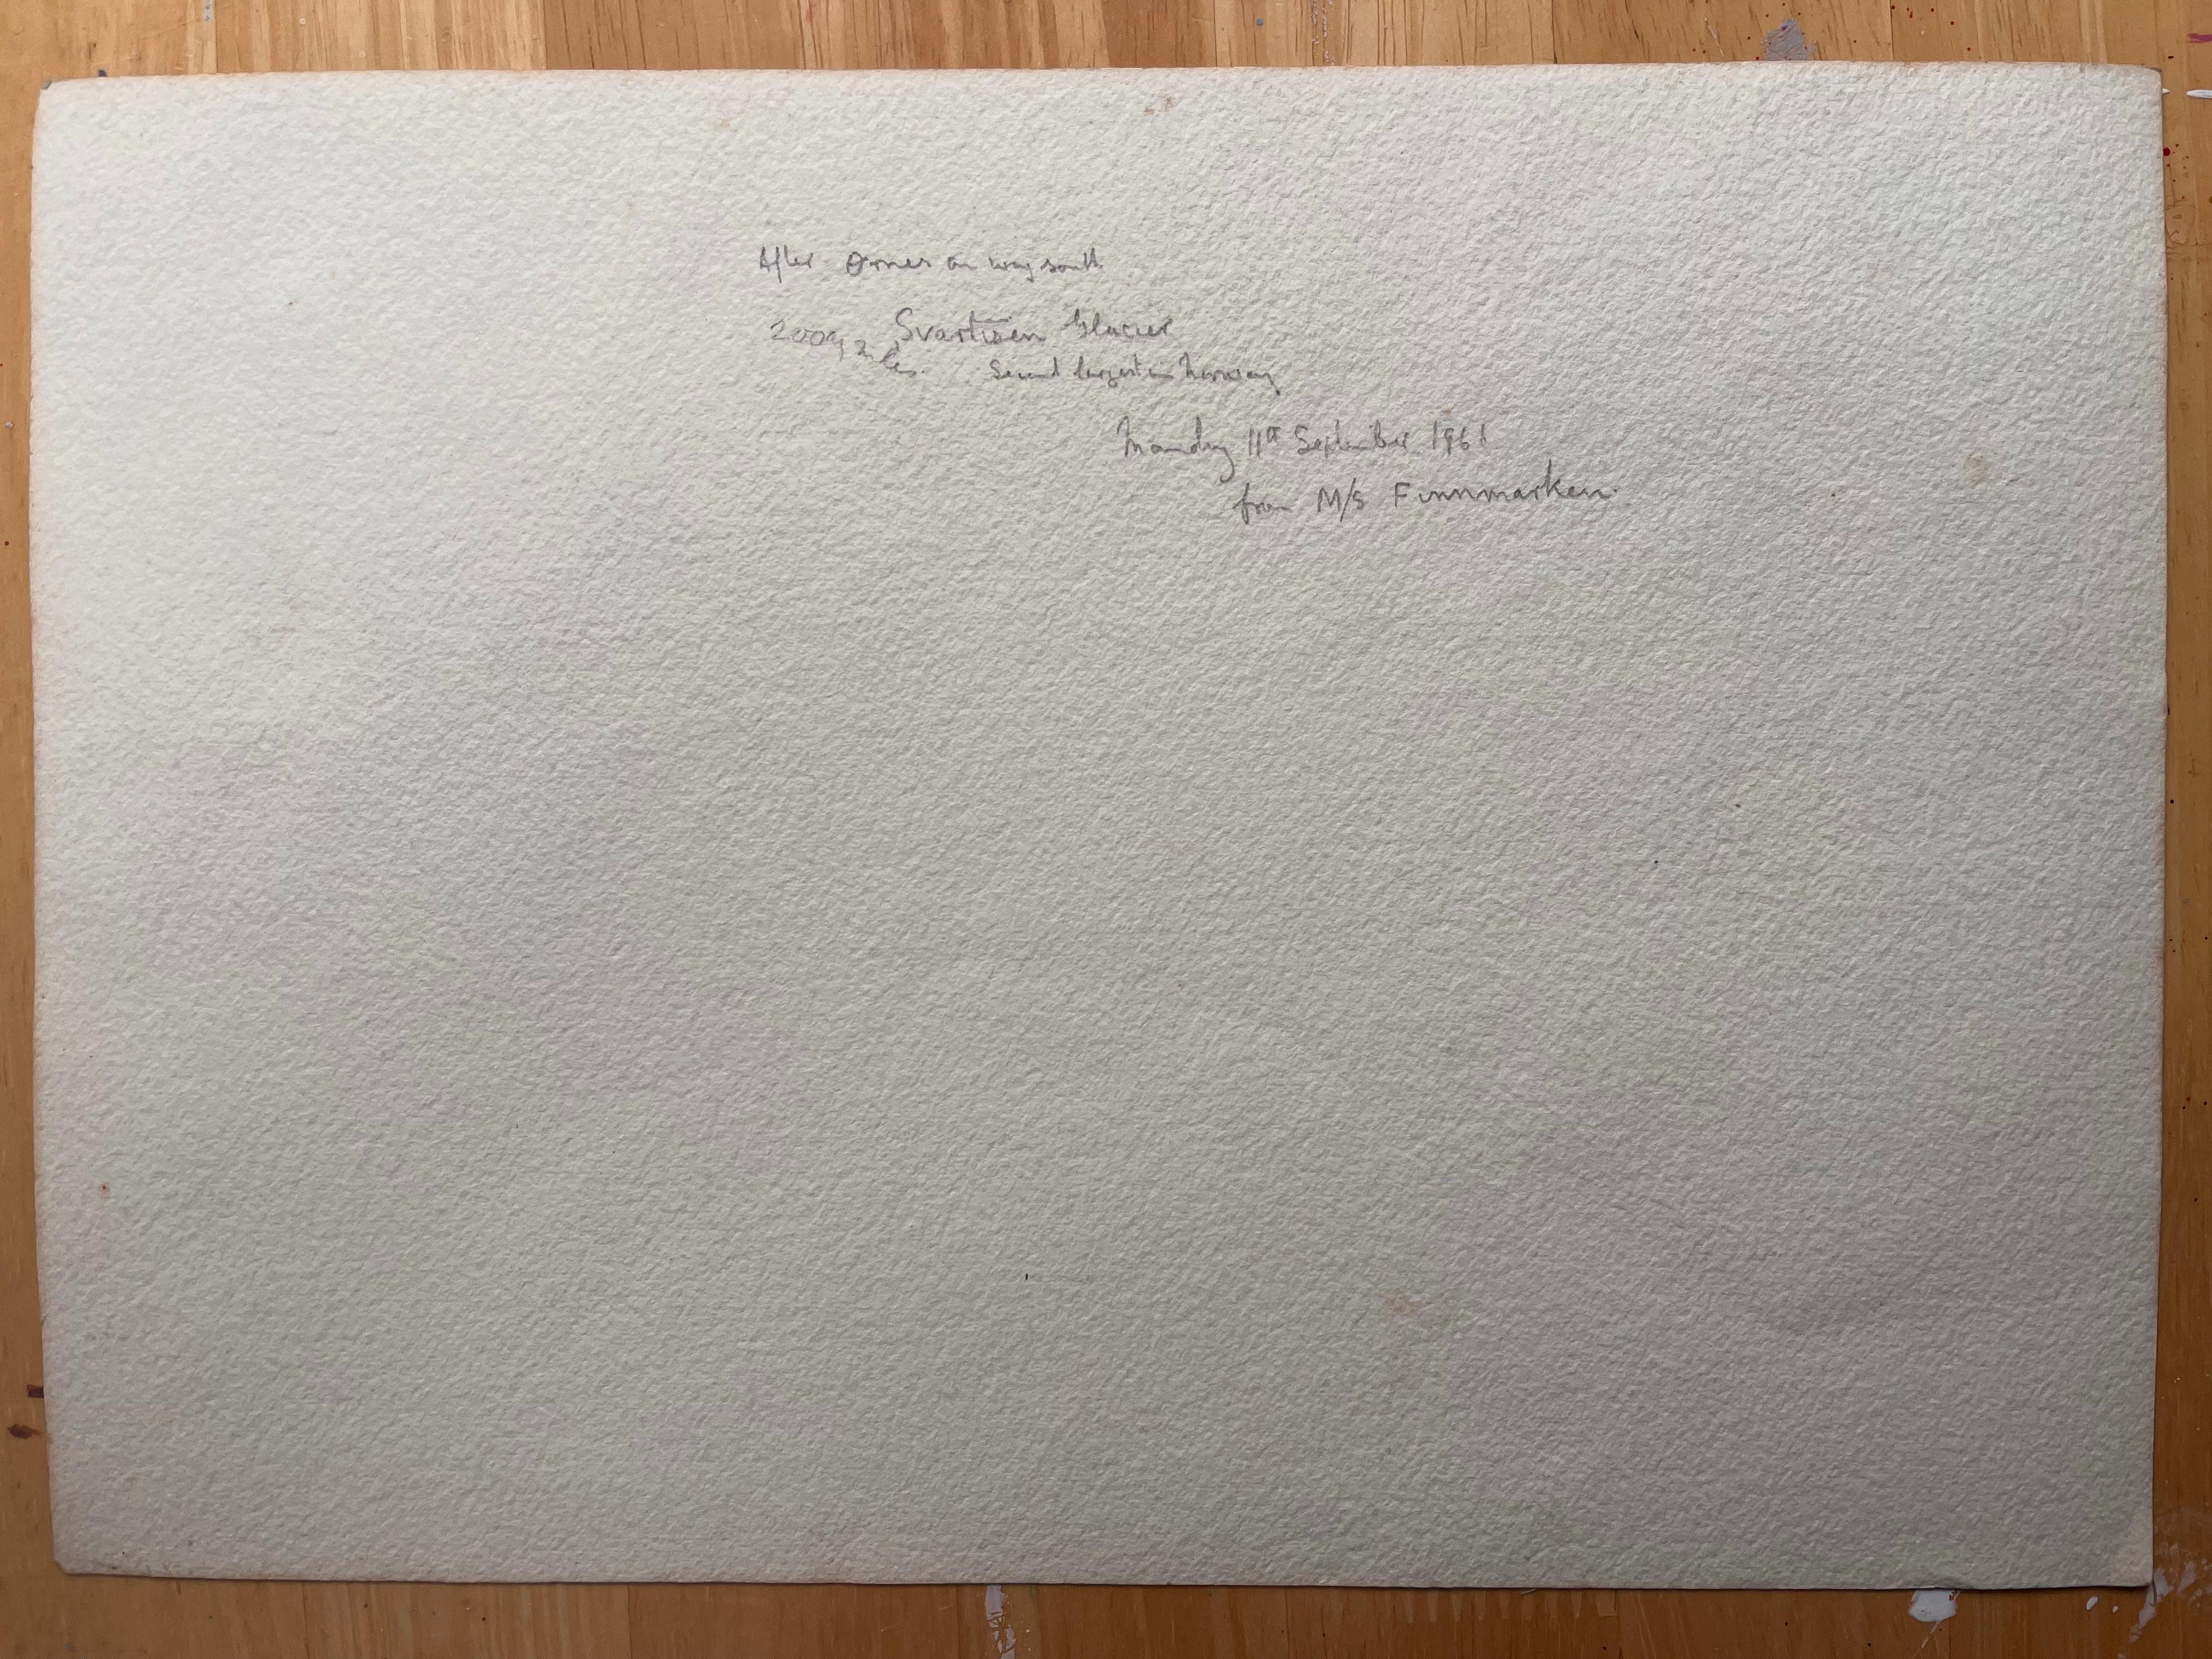 After Ørnes on way south
200 sq miles. Svartisen Glacier
Second largest in Norway
Monday 11th September 1961
from M/S Finnmarken.